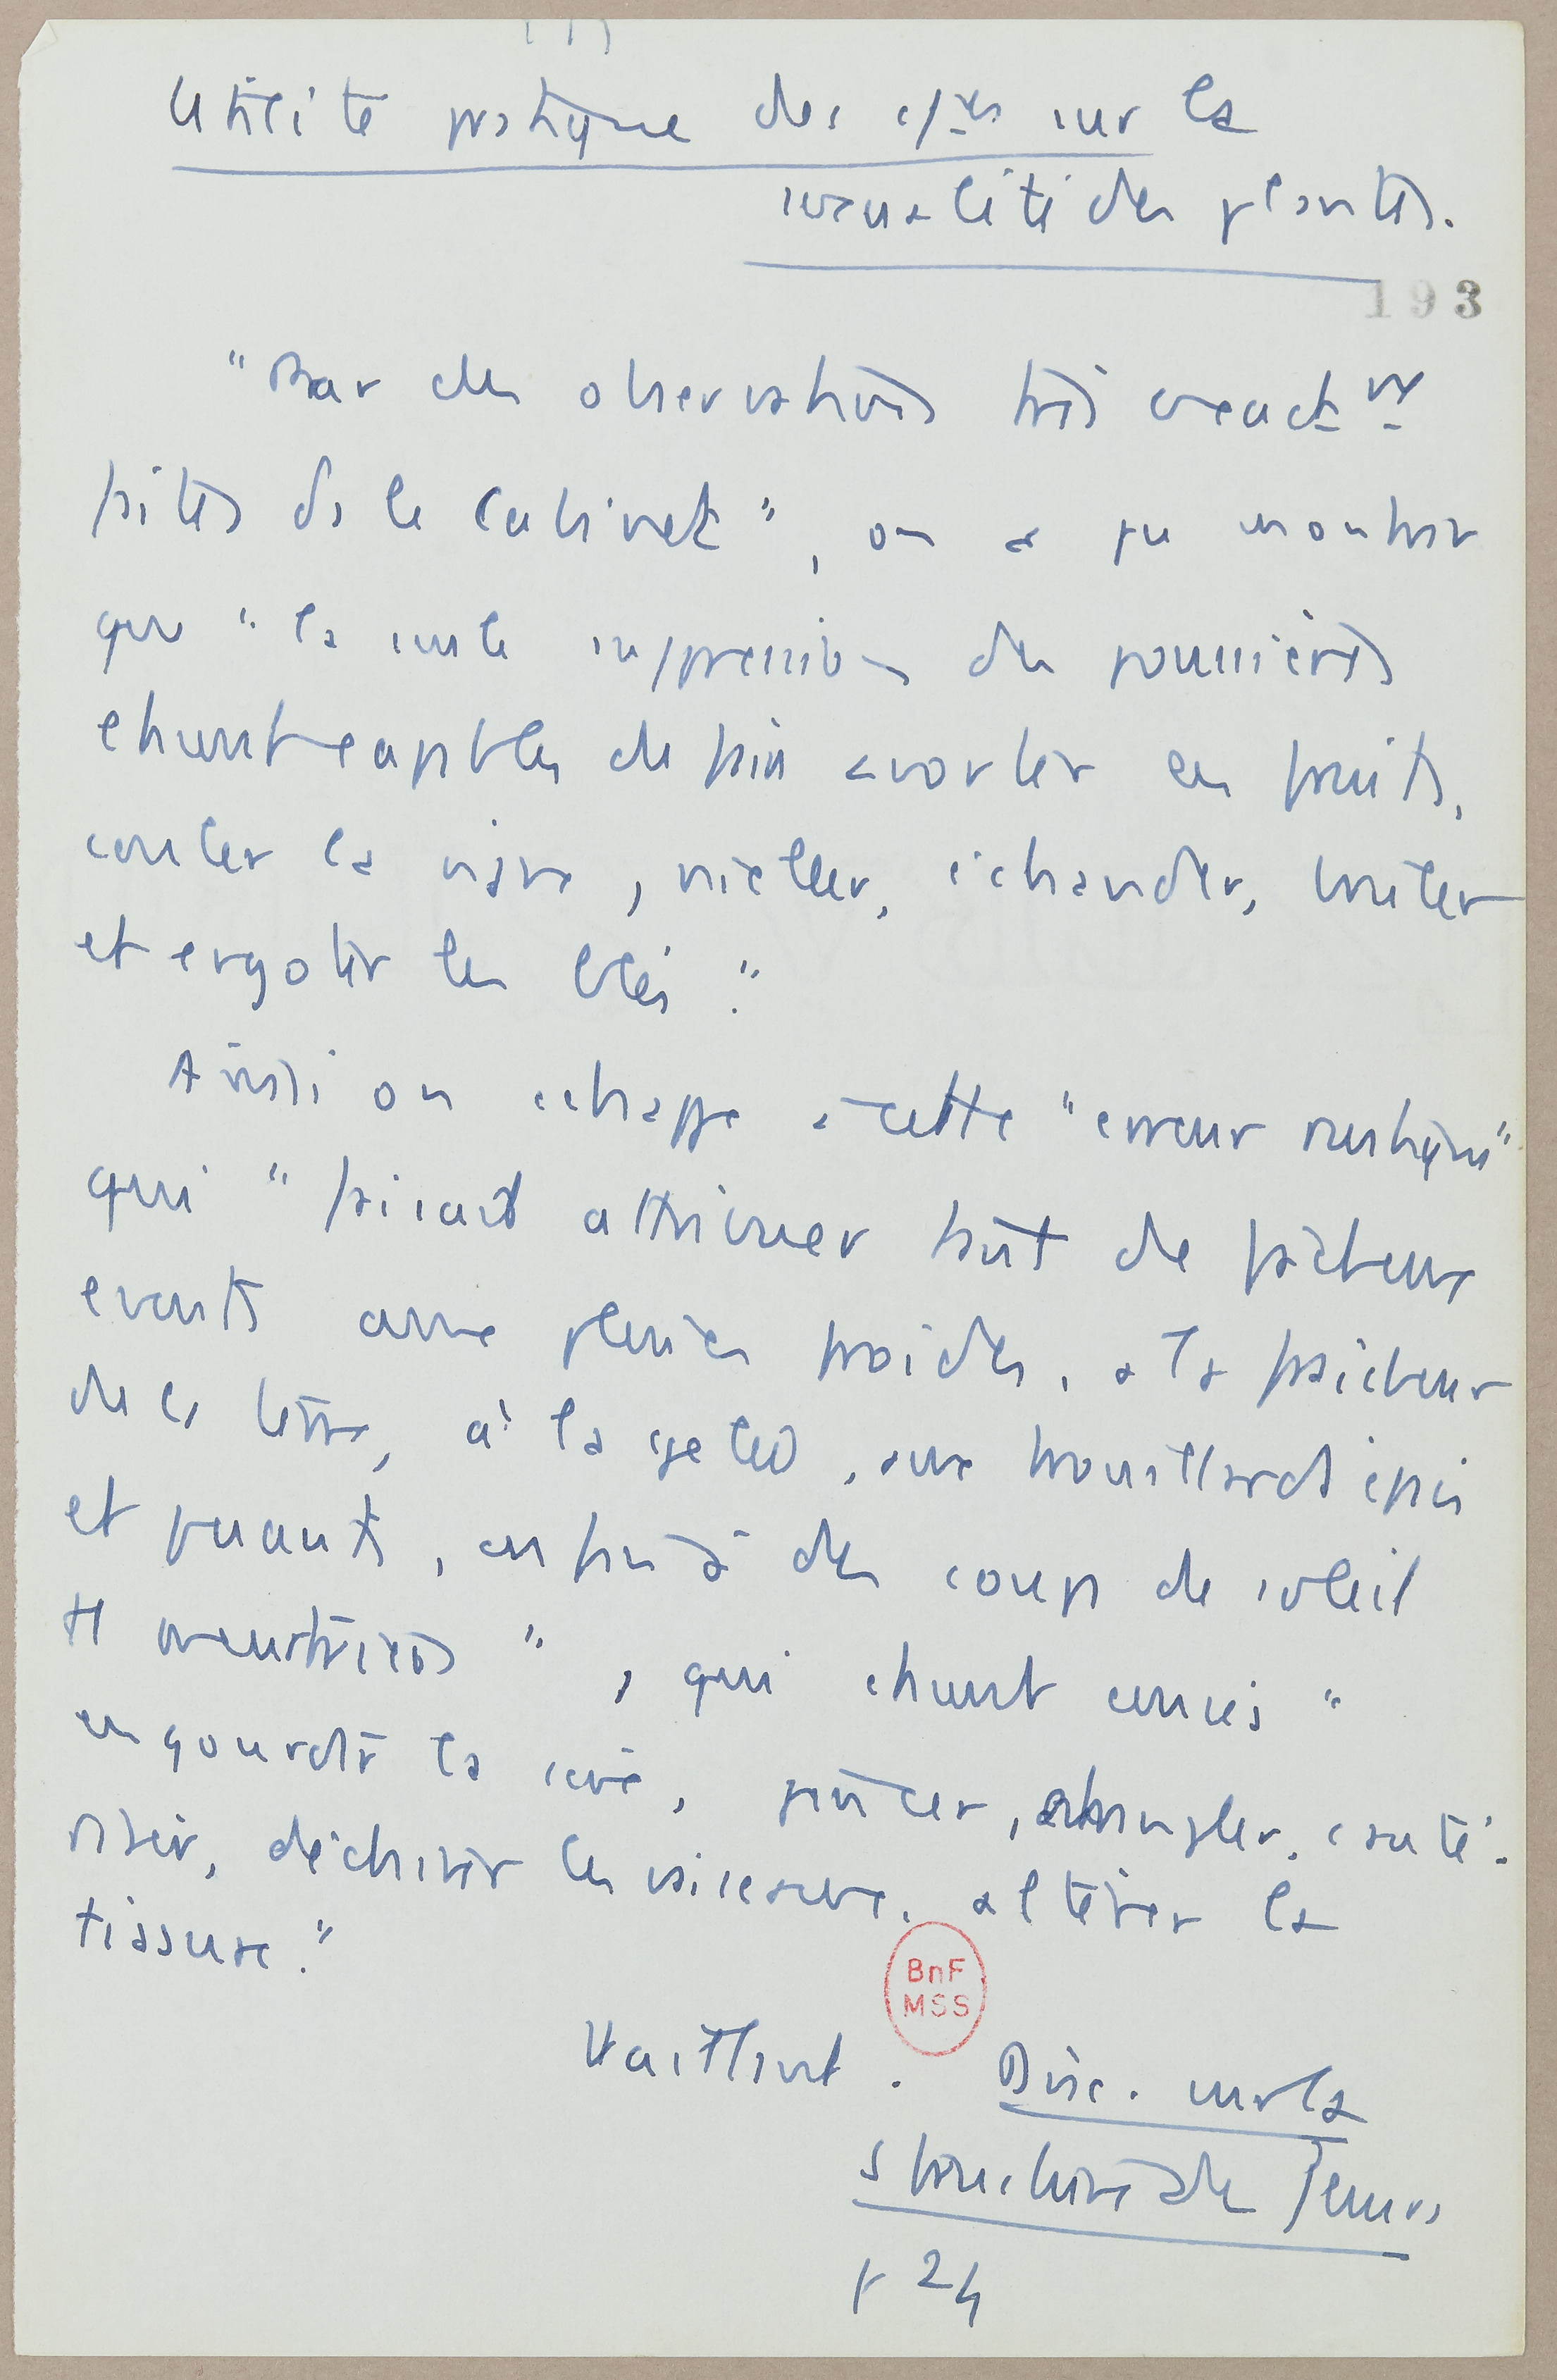 Utilité pratique des exp. sur la
sexualité des plantes.
193
"Par des observations très exactes
faites ds le cabinet", on a pu montrer
que "la seule impression des poussières
étaient capables de faire avorter les fruits,
couler la vigne, nieller, échauder, bruler
et ergoter les blés."
Ainsi on échappe à cette "erreur rustique"
qui "faisait attribuer tant de fâcheux
events aux pluies froides, à la fraicheur
de la terre, à la gelée, aux brouillards épais
et puants, enfin à des coups de soleil
si meurtriers", qui étaient censés "
engourdir la sève, pincer, étrangler, cauté-
riser, déchirer les vaisseaux, altérer la
tissure."
BnF
MSS
Vaillant. Disc. sur la
structure des fleurs
p 24